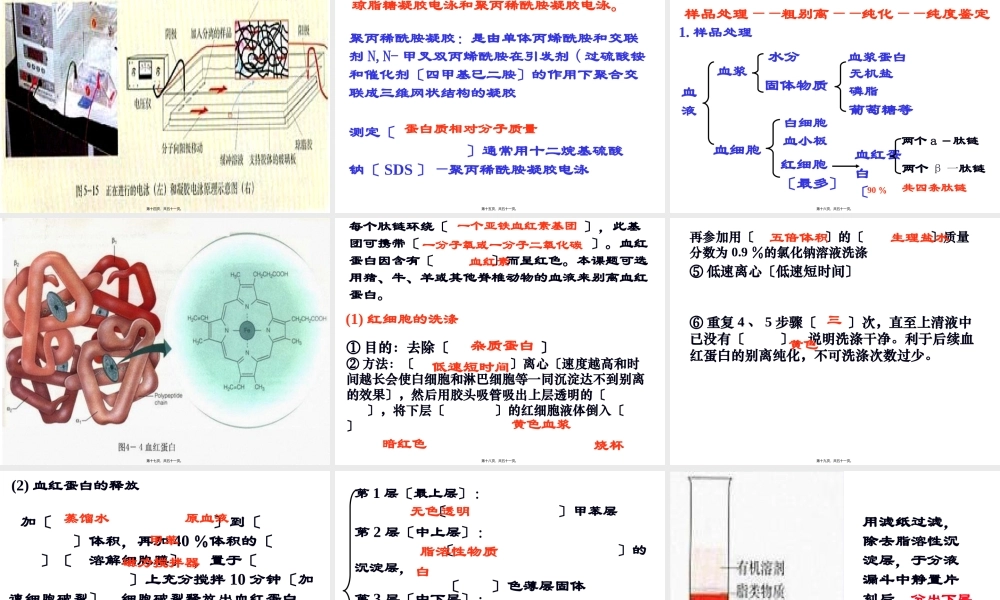 阴极
加入分离的样品
阳极
电压仪
分子向阳极移动
缓冲溶液
支持胶体的玻璃板
琼脂胶
图5-15 正在进行的电泳（左）和凝胶电泳原理示意图（右）
第十四页，共五十一页。
琼脂糖凝胶电泳和聚丙烯酰胺凝胶电泳。
聚丙烯酰胺凝胶：是由单体丙烯酰胺和交联
剂 N,N- 甲叉双丙烯酰胺在引发剂（过硫酸铵
和催化剂〔四甲基已二胺〕的作用下聚合交
联成三维网状结构的凝胶
测定〔 蛋白质相对分子质量
〕通常用十二烷基硫酸
钠〔 SDS 〕—聚丙烯酰胺凝胶电泳
第十五页，共五十一页。
样品处理——粗别离——纯化——纯度鉴定
1. 样品处理
血液
血浆
水分
固体物质
血浆蛋白
无机盐
磷脂
葡萄糖等
血细胞
白细胞
血小板
红细胞
〔最多〕
血红蛋
白
〔90 %
两个 a – 肽链
两个 β 一肽链
共四条肽链
第十六页，共五十一页。
β₁
β₂
α₂
α₁
H₃C
CH₂CH₂COOH
H₂C=CH
CH₂CH₂COOH
N
N
Fe
N
N
H₃C
CH₃
H₂C=CH
CH₃
Polypeptide
chain
图4－4 血红蛋白
第十七页，共五十一页。
每个肽链环绕〔 一个亚铁血红素基团 〕，此基
团可携带〔 一分子氧或一分子二氧化碳 〕。血红
蛋白因含有〔 血红素 〕而呈红色。本课题可选
用猪、牛、羊或其他脊椎动物的血液来别离血红
蛋白。
(1) 红细胞的洗涤
① 目的：去除〔 杂质蛋白 〕
② 方法：〔 低速短时间 〕离心〔速度越高和时
间越长会使白细胞和淋巴细胞等一同沉淀达不到别离
的效果〕，然后用胶头吸管吸出上层透明的〔
〕，将下层〔 〕的红细胞液体倒入〔
〕
黄色血浆
暗红色
烧杯
第十八页，共五十一页。
再参加用〔 五倍体积 〕的〔 生理盐水 〕质量
分数为 0.9 %的氯化钠溶液洗涤
⑤ 低速离心〔低速短时间〕
⑥ 重复 4 、 5 步骤〔 三 〕次，直至上清液中
已没有〔 黄色 〕，说明洗涤干净。利于后续血
红蛋白的别离纯化，不可洗涤次数过少。
第十九页，共五十一页。
(2) 血红蛋白的释放
加〔 蒸馏水 〕到〔 原血液
〕体积，再加 40 %体积的〔
〕〔 溶解细胞膜〕，置于〔
磁力搅拌器
〕上充分搅拌 10 分钟〔加
速细胞破裂〕，细胞破裂释放出血红蛋白
第 1 层〔最上层〕：
〔 无色透明 〕甲苯层
第 2 层〔中上层〕：
〔 脂溶性物质 〕的
沉淀层，
白
〔 〕色薄层固体
第 3 层〔中下层〕：
有机溶剂
脂类物质
用滤纸过滤，
除去脂溶性沉
淀层，于分液
漏斗中静置片
刻后，分出下层